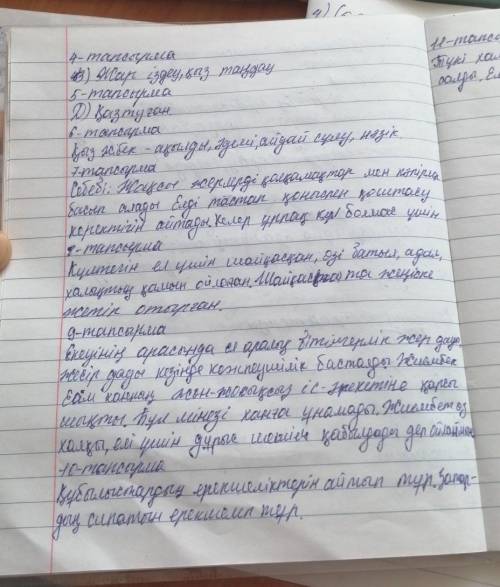 4) Са
11-тапс
Түкі хал
халды, Ел
4-тапсырма
В) Жар іздеу, қыз таңдау
5-тапсырма
Д) Қазтуған
6-тапсырма
Қыз Жібек - ақылды, әдемі, айдай сұлу, нәзік
7-тапсырма
Себебі: Жақсы жерлерді қалмақтар мен кәпірлер
басып алады Елді тастап қоныспен қоштасу
керектігін айтады Келер ұрпақ құл болмас үшін
8-тапсырма
Күлтегін ел үшін шайқасқан, өзі батыл, адал,
халықтың қамын ойлаған. Шайқаста да жеңіске
жетіп отырған.
9-тапсырма
Екеуінің арасында ел аралық бітімгерлік жер дауы
жесір дауы кезінде келіспеушілік басталды Жиембет
Есім ханның жөн-жосықсыз іс-әрекетіне қарсы
шықты. Бұл мінезі ханға ұнамады. Жиембет өз
халқы, елі үшін дұрыс шешім қабылдады деп ойлаймын
10-тапсырма
Құбылыстардың ерекшеліктерін айтып тұр. Заттар-
дың сипатын ерекшелеп тұр.